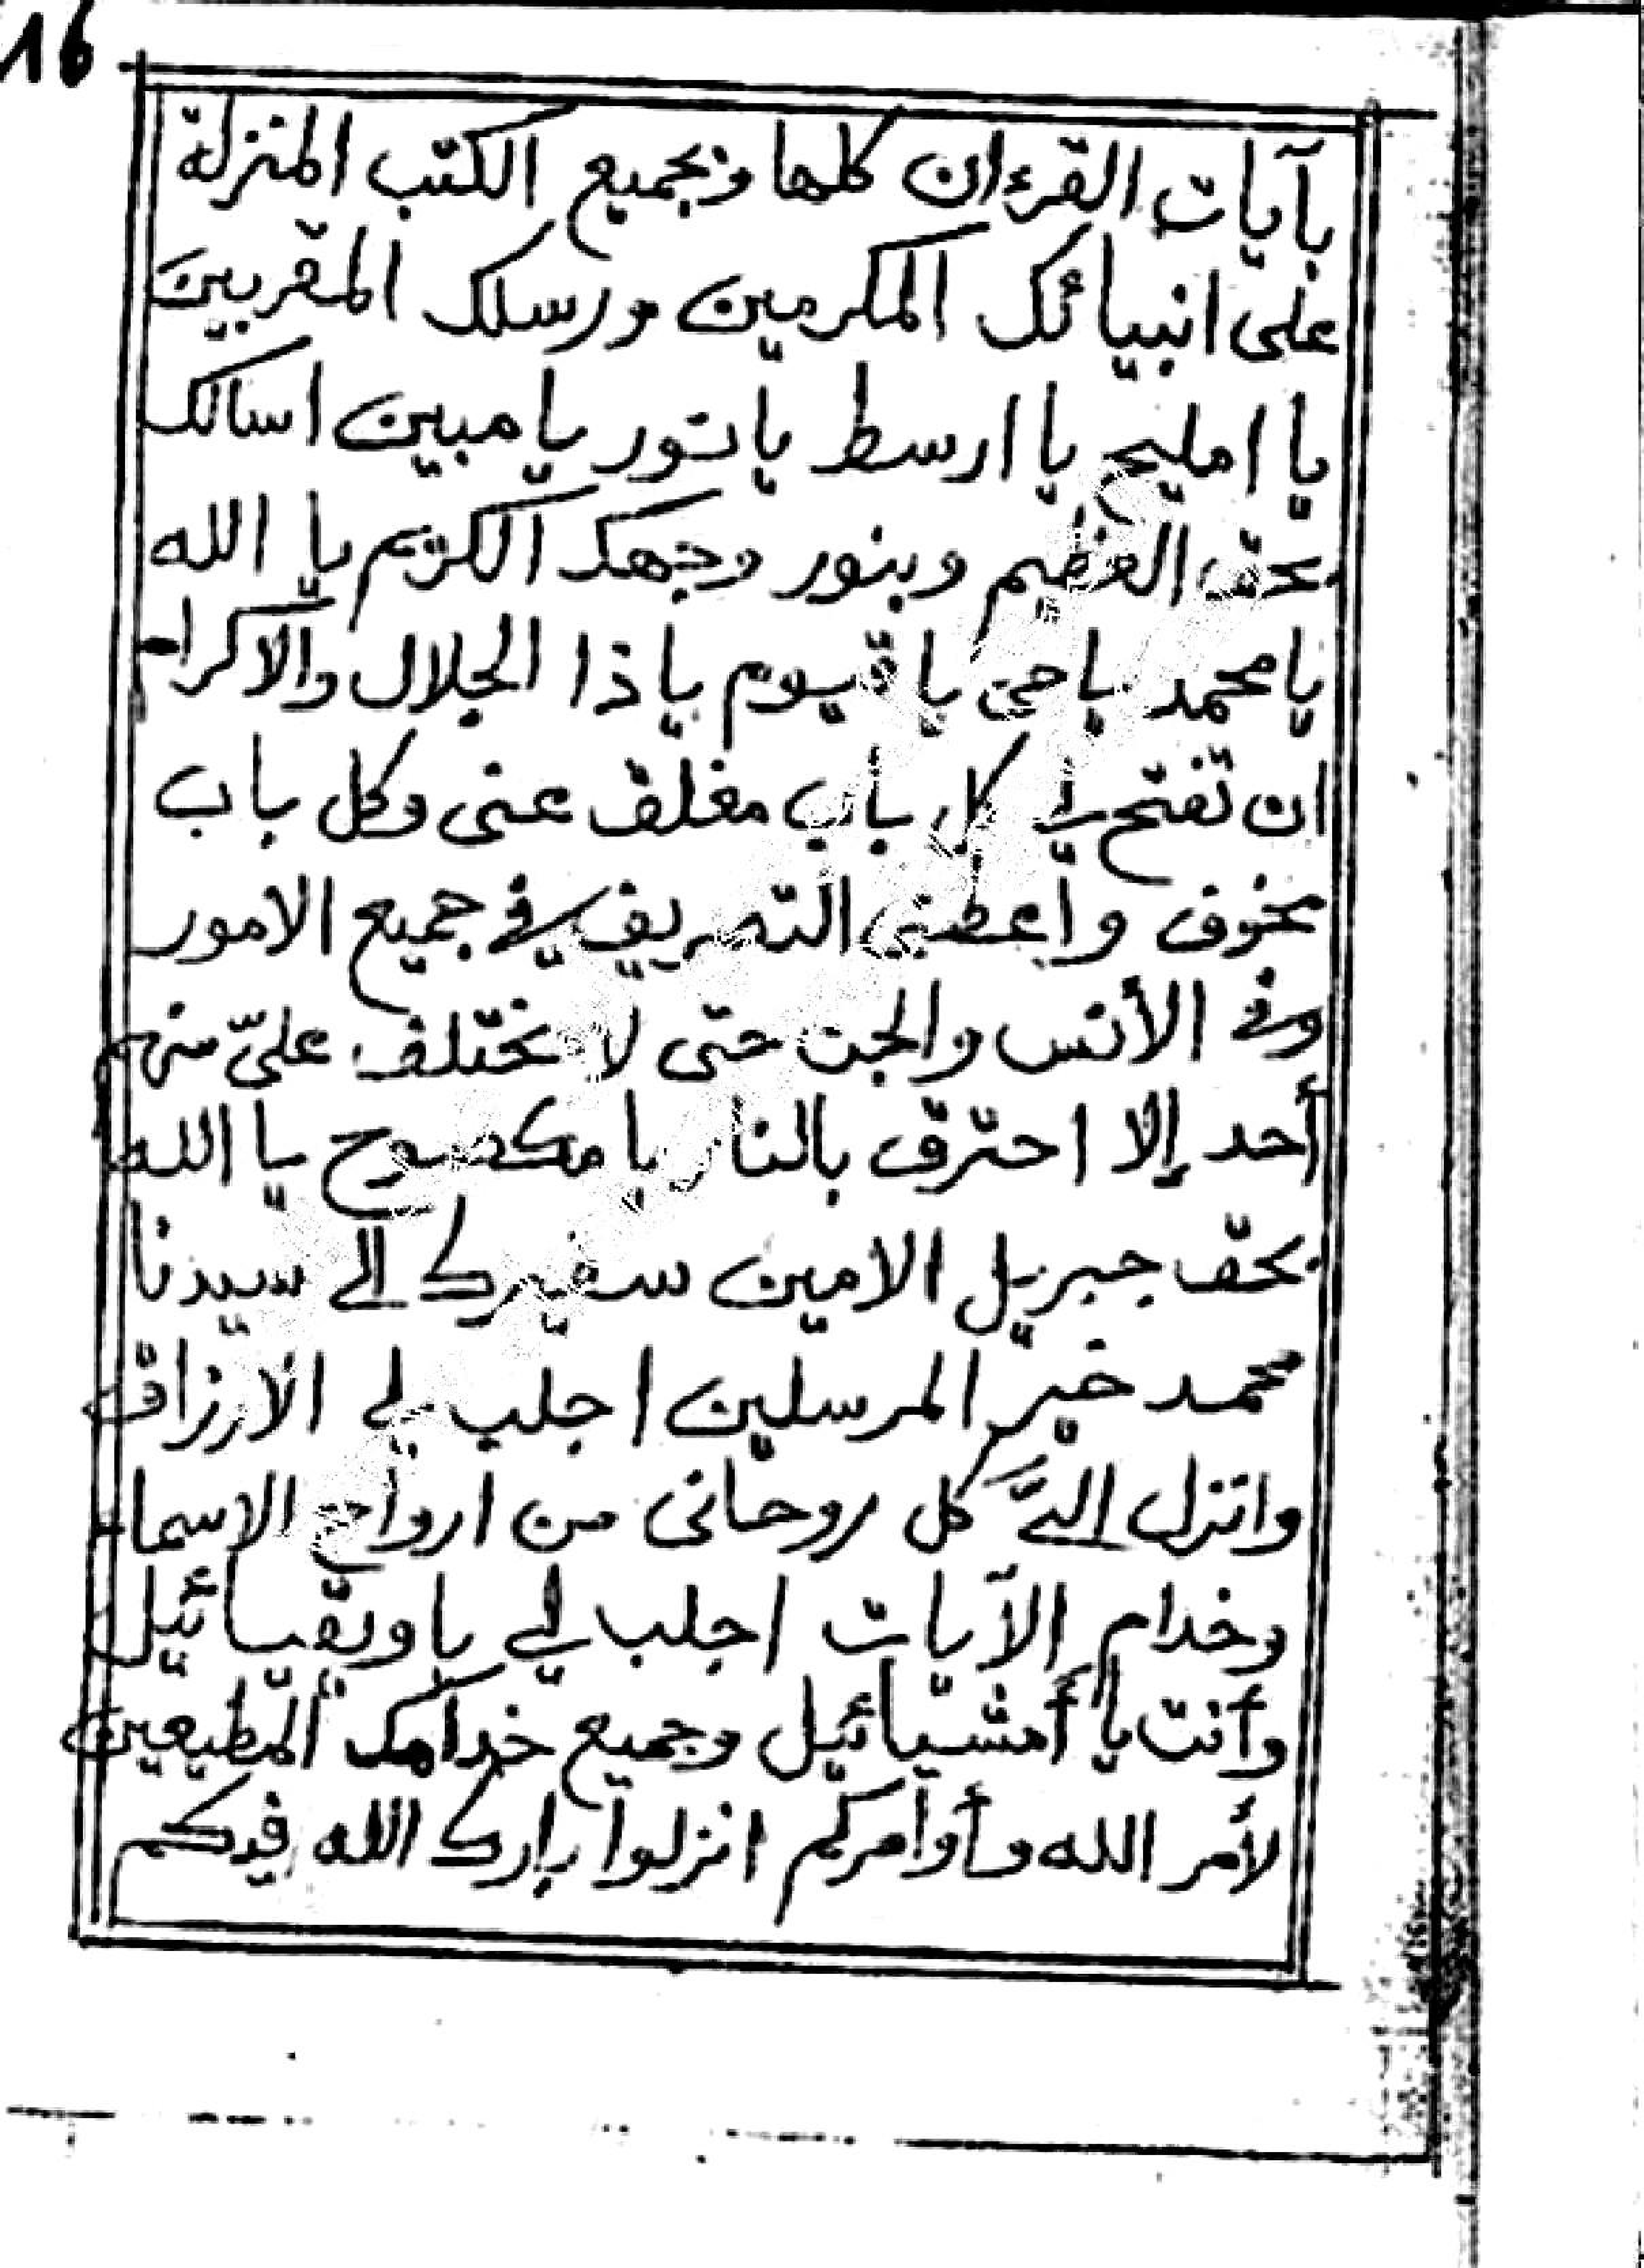 16
بآيات القرءان كلها وبجميع الكتب المنزلة
على انبيائك المكرمين ورسلك المقربين
يا امليح يا ارسط يا نور يا مبين اسالك
بحق العظيم وبنور وجهك الكريم يا الله
يا محمد يا حي يا قيوم يا ذا الجلال والاكرام
ان تفتح لي كل باب مغلق عنى وكل باب
مخوف واعطنى التصريف في جميع الامور
وفي الأنس والجن حتى لا يختلف عليّ منهم
أحد إلا احترق بالنار يا الله
بحق جبريل الامين سفيرك الى سيدنا
محمد خير المرسلين اجلب لي الارزاق
وانزل إليَّ كل روحانى من ارواح الاسماء
وخدام الآيات اجلب لي يا
وأنت يا أمشيائيل وجميع خدامك المطيعين
لأمر الله وأوامركم انزلوا بارك الله فيكم